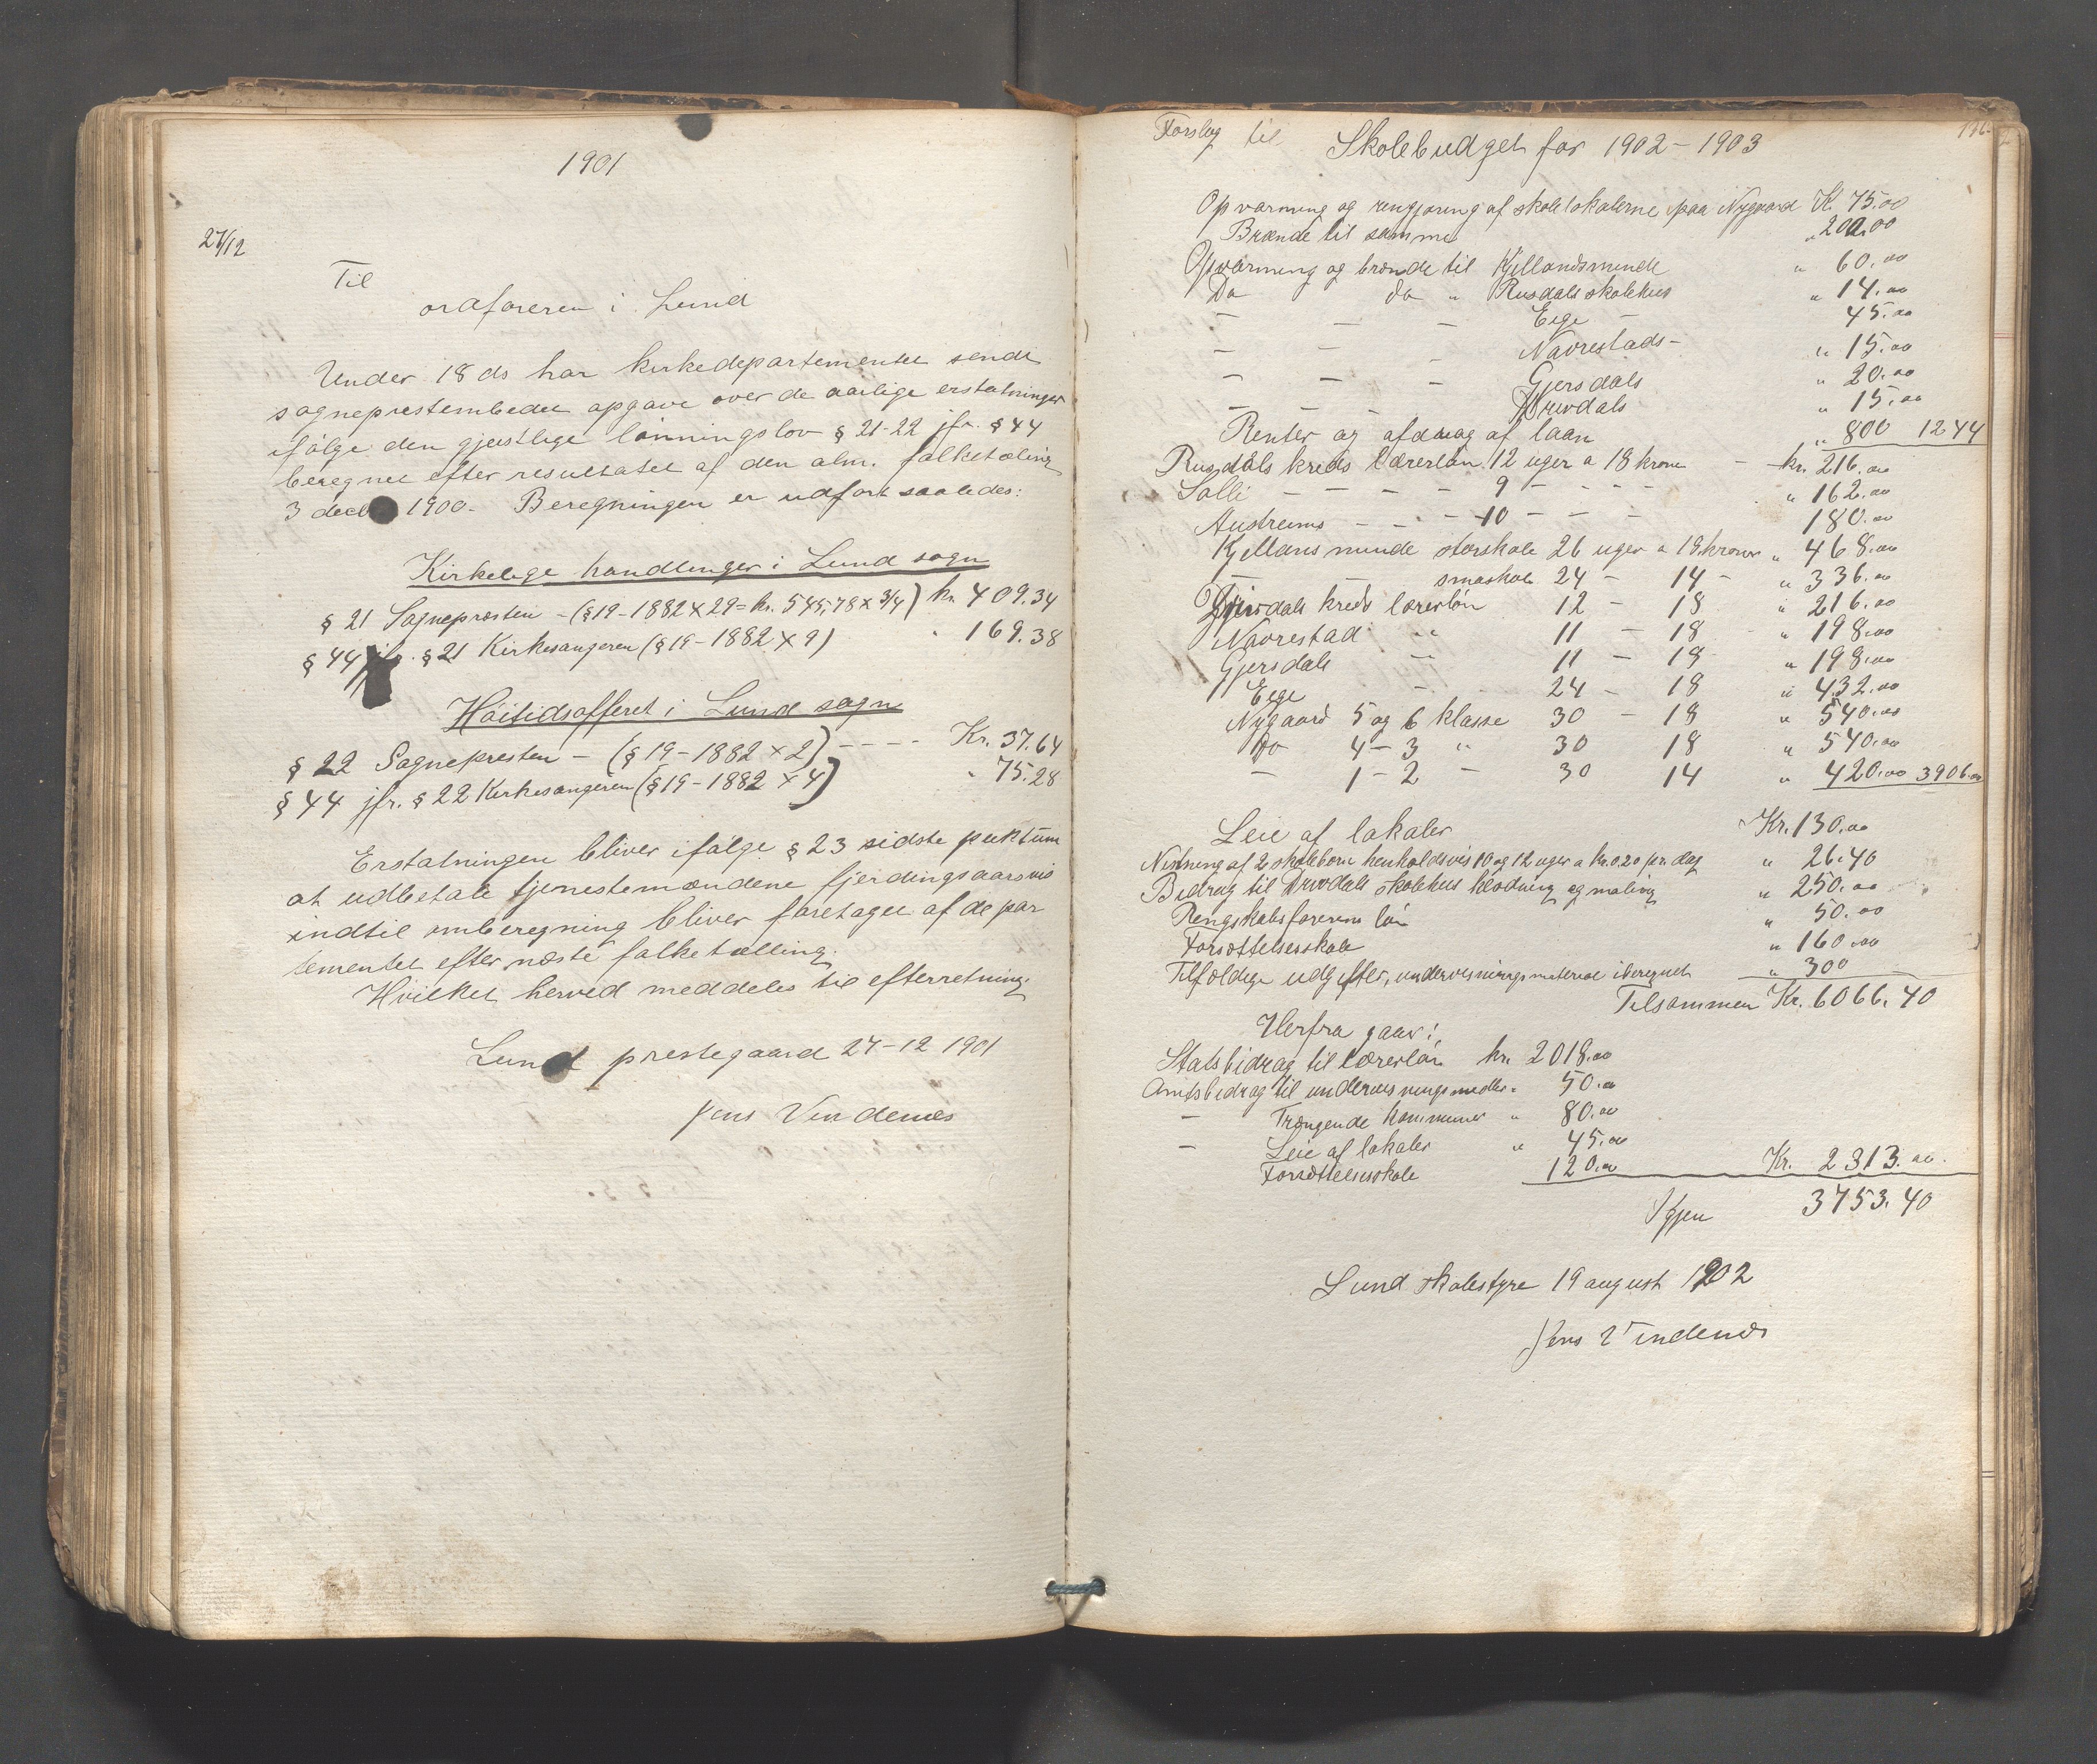 1901
27/12
Til
ordføreren i Lund
Under 18 ds har kirkedepartementet sendt
sogneprestembedet opgave over de aarlige erstatninger
ifølge den gjeistlige lønningslov § 21-22 jfr. § 44
beregnet efter resultatet af den alm. folketæling
3 decbr 1900. Beregningen er udført saaledes:
Kirkelige handlinger i Lund sogn
§ 21 Sognepresten - (§ 19 - 1882 × 29 = kr. 545,78 × 3/4) kr. 409.34
§ 44 jfr. § 21 Kirkesangeren (§ 19 - 1882 × 9) " 169.38
Høitidsofferet i Lund sogn
§ 22 Sognepresten - (§ 19 - 1882 × 2) - - - - Kr. 37.64
§ 44 jfr. § 22 Kirkesangeren (§ 19 - 1882 × 4) " 75.28
Erstatningen bliver ifølge § 23 sidste punktum
at udbetale tjenestemændene fjerdingsaarsvis
indtil omberegning bliver foretaget af depar
tementet efter næste folketælling.
Hvilket herved meddeles til efterretning.
Lund prestegaard 27-12 1901
Jens Vindenes
Forslag til Skolebudget for 1902 - 1903
Opvarming og rengjøring af skolelokalerne paa Nygaard Kr. 75.00
Brænde til samme " 200.00
Opvarming og brænde til Kjellandsminde " 60.00
Do do " Rusdals skolehus " 14.00
— — — Eige — 45.00
— — — Navrestads - " 15.00
— — — Gjersdals " 20.00
— — — Drivdals " 15.00
Renter og afdrag af laan " 800 1244
Rusdals kreds lærerløn 12 uger a 18 kroner - kr. 216.00
Salli - - - - 9 - - - - " 162.00
Austrums - - - 10 - - - 180.00
Kjellansminde storskole 26 uger a 18 kroner " 468.00
— smaskole 24 - 14 - " 336.00
Drivdals kreds lærerløn 12 - 18 " 216.00
Navrestad " 11 - 18 " 198.00
Gjersdals — 11 - 18 " 198.00
Eige - - 24 - 18 " 432.00
Nygaard 5 og 6 klasse 30 - 18 " 540.00
Do 4 - 3 " 30 18 " 540.00
— 1 - 2 - 30 14 " 420.00 3906.00
Leie af lokaler Kr. 130.00
Nistning af 2 skolebørn henholdsvis 10 og 12 uger a kr. 0.20 pr. dag " 26.40
Bidrag til Drivdals skolehus klædning og maling " 250.00
Rengskabsførerens løn " 50.00
Forsættelsesskole " 160.00
Tilfældige udgifter, undervisningsmateriel iberegnet " 300
Tilsammen Kr. 6066.40
Herfra gaar:
Statsbidrag til lærerløn kr. 2018.00
Amtsbidrag til undervisningsmidler " 50.00
— Trængende kommuner " 80.00
— Leie af lokaler " 45.00
Forsættelsesskole 120.00 Kr. 2313.00
Igjen 3753.40
Lund skolestyre 19 august 1902
Jens Vindenes